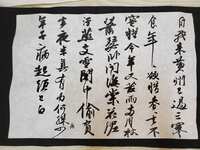 自我來黃州已過三寒
食年欲惜春去不
容惜今年又苦雨兩月秋
蕭瑟卧聞海棠花泥
汙燕支雪闇中偷負
去夜半真有力何殊少
年子病起頭已白